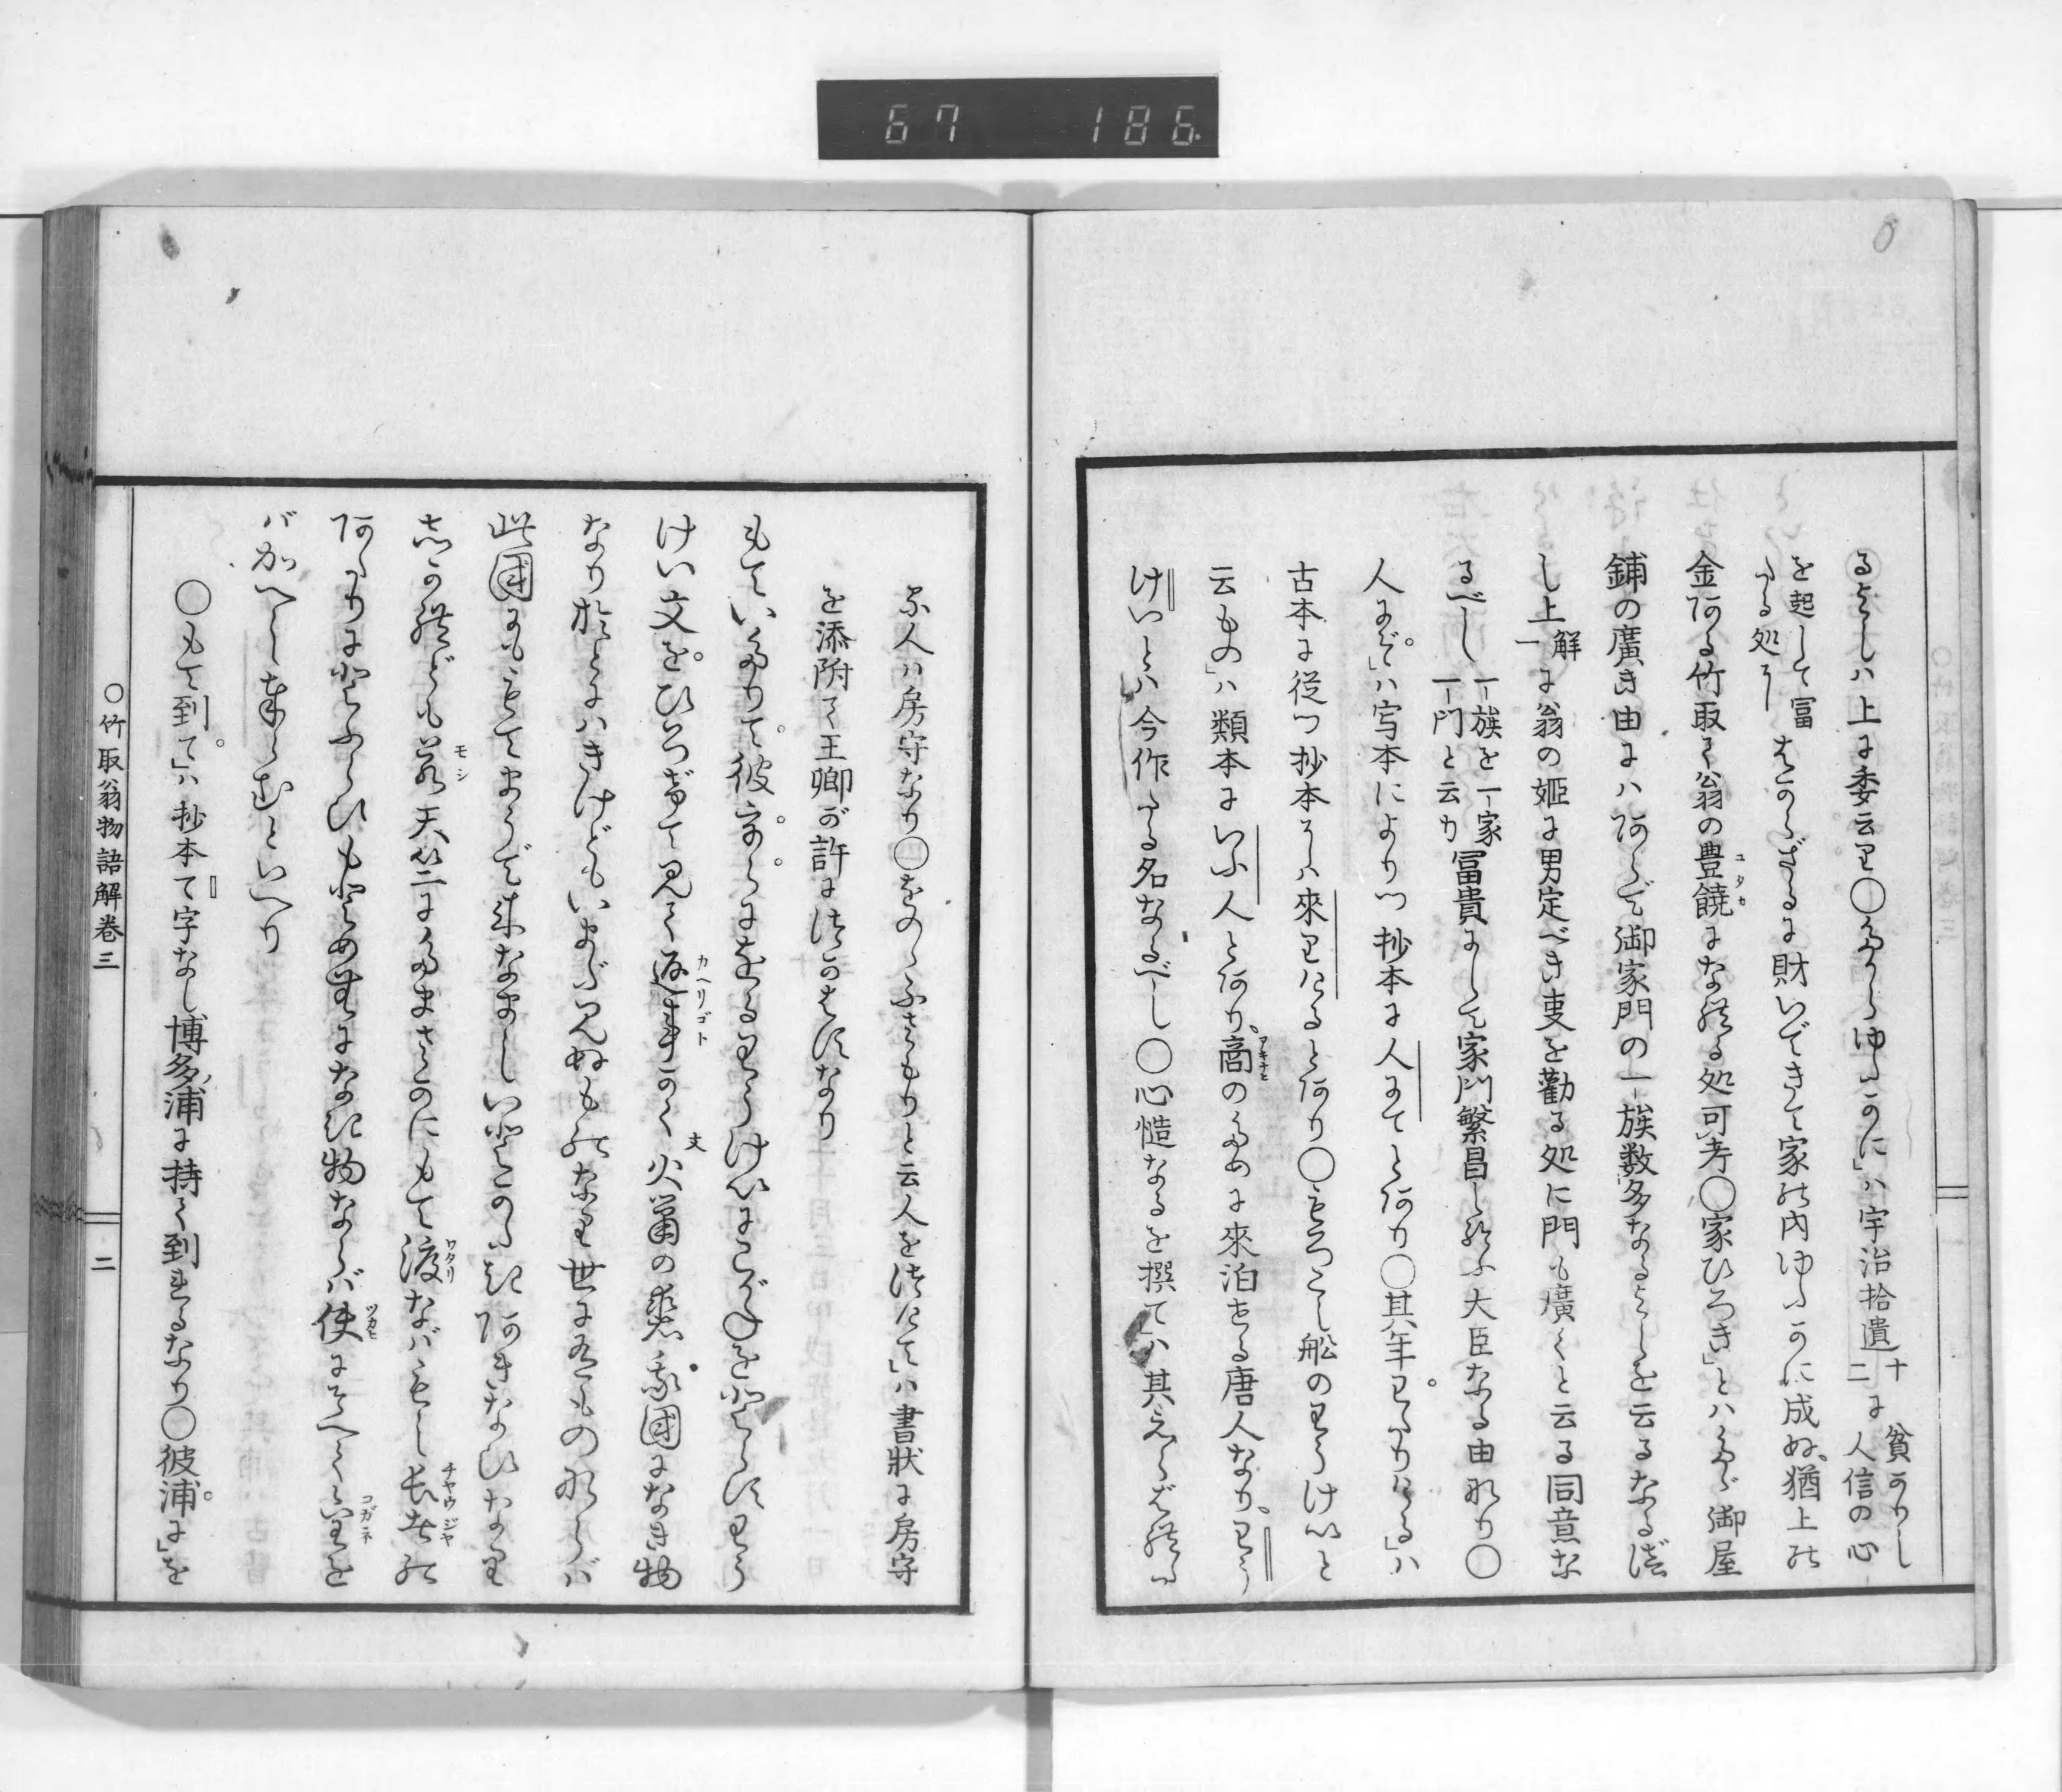 67 186
るよしハ上に委云り〇たからゆたかに」ハ宇治拾遺十二に貧かりし人信の心
を起して冨たる処にはからざるに財いできて家の内ゆたかに成ぬ、猶上の
金ある竹取て翁の豊饒ユタカになれる処可考〇家ひろき」とハたゞ御屋
鋪の廣き由にハあらで御家門の一族数多なるよしを云るなる済
し上解一に翁の姫に男定べき叓を勸る処に門も廣くと云る同意な
るべし一族を一家一門と云カ冨貴にして家門繁昌し給ふ大臣なる由なり〇
人にぞ」ハ写本によりつ抄本に人にてとあり〇其年わたりける」ハ
古本に従つ抄本にハ來りたるとあり〇もろこし舩のわうけいと
云もの」ハ類本にいふ人とあり、商アキナヒのために來泊せる唐人なり、わう
けいとハ今作たる名なるべし〇心慥なるを撰て」ハ其えらばれた
る人ハ房守なり〇をのゝふさもりと云人を㳒けて」ハ書状に房守
を添附て王卿が許につかはすなり
もていたりて彼浦にをるわうけいにこがねをとらすわう
けい文をひろげて見て返事カヘリゴトかく文火鼠の裘我國になき物
なりおとにハきけどもいまだ見ぬものなり世にあるものならバ
此國にももてまうで來なましいとかたきあきなひなり
しかれども若モシ天竺にたまさかにもて渡ワタリなバもし長者チヤウジヤの
あたりにとふらひもとめむになき物ならバ使ツカヒにそへてこがねコガネを
バかへし奉らむといへり
〇もて到て」ハ抄本て字なし博多ノ浦に持て到れるなり〇彼浦に」を
〇竹取翁物語解巻三
二